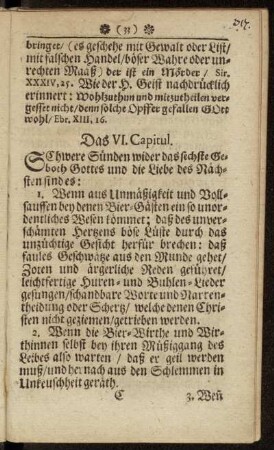 ❀ ( 33 ) ❀
bringet / (es geschehe mit Gewalt oder List /
mit falschen Handel / böser Wahre oder un-
rechten Maaß) der ist ein Mörder / Sir.
XXXIV, 25. Wie der H. Geist nachdrücklich
erinnert: Wohlzuthun und mitzutheilen ver-
gesset nicht / denn solche Opffer gefallen GOtt
wohl / Ebr. XIII, 16.
Das VI. Capitul.
SChwere Sünden wider das sechste Ge-
both Gottes und die Liebe des Näch-
sten sind es:
1. Wenn aus Unmäßigkeit und Voll-
sauffen bey denen Bier-Gästen ein so unor-
dentliches Wesen kömmet; daß des unver-
schämten Hertzens böse Lüste durch das
unzüchtige Gesicht herfür brechen: daß
faules Geschwätze aus den Munde gehet /
Zoten und ärgerliche Reden geführet /
leichtfertige Huren- und Buhlen-Lieder
gesungen / schandbare Worte und Narren-
theidung oder Schertz / welche denen Chri-
sten nicht geziemen / getrieben werden.
2. Wenn die Bier-Wirthe und Wir-
thinnen selbst bey ihren Müßiggang des
Leibes also warten / daß er geil werden
muß / und hernach aus den Schlemmen in
Unkeuschheit geräth.
C 3. Weñ